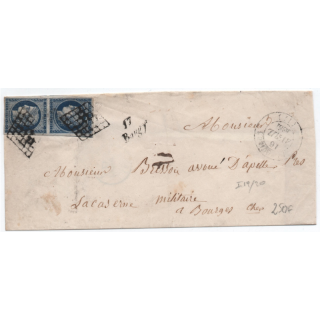 17
Baugy
Monsieur
Monsieur Brisson avoué d'apelle Près
La caserne militaire
a Bourges Cher
250F